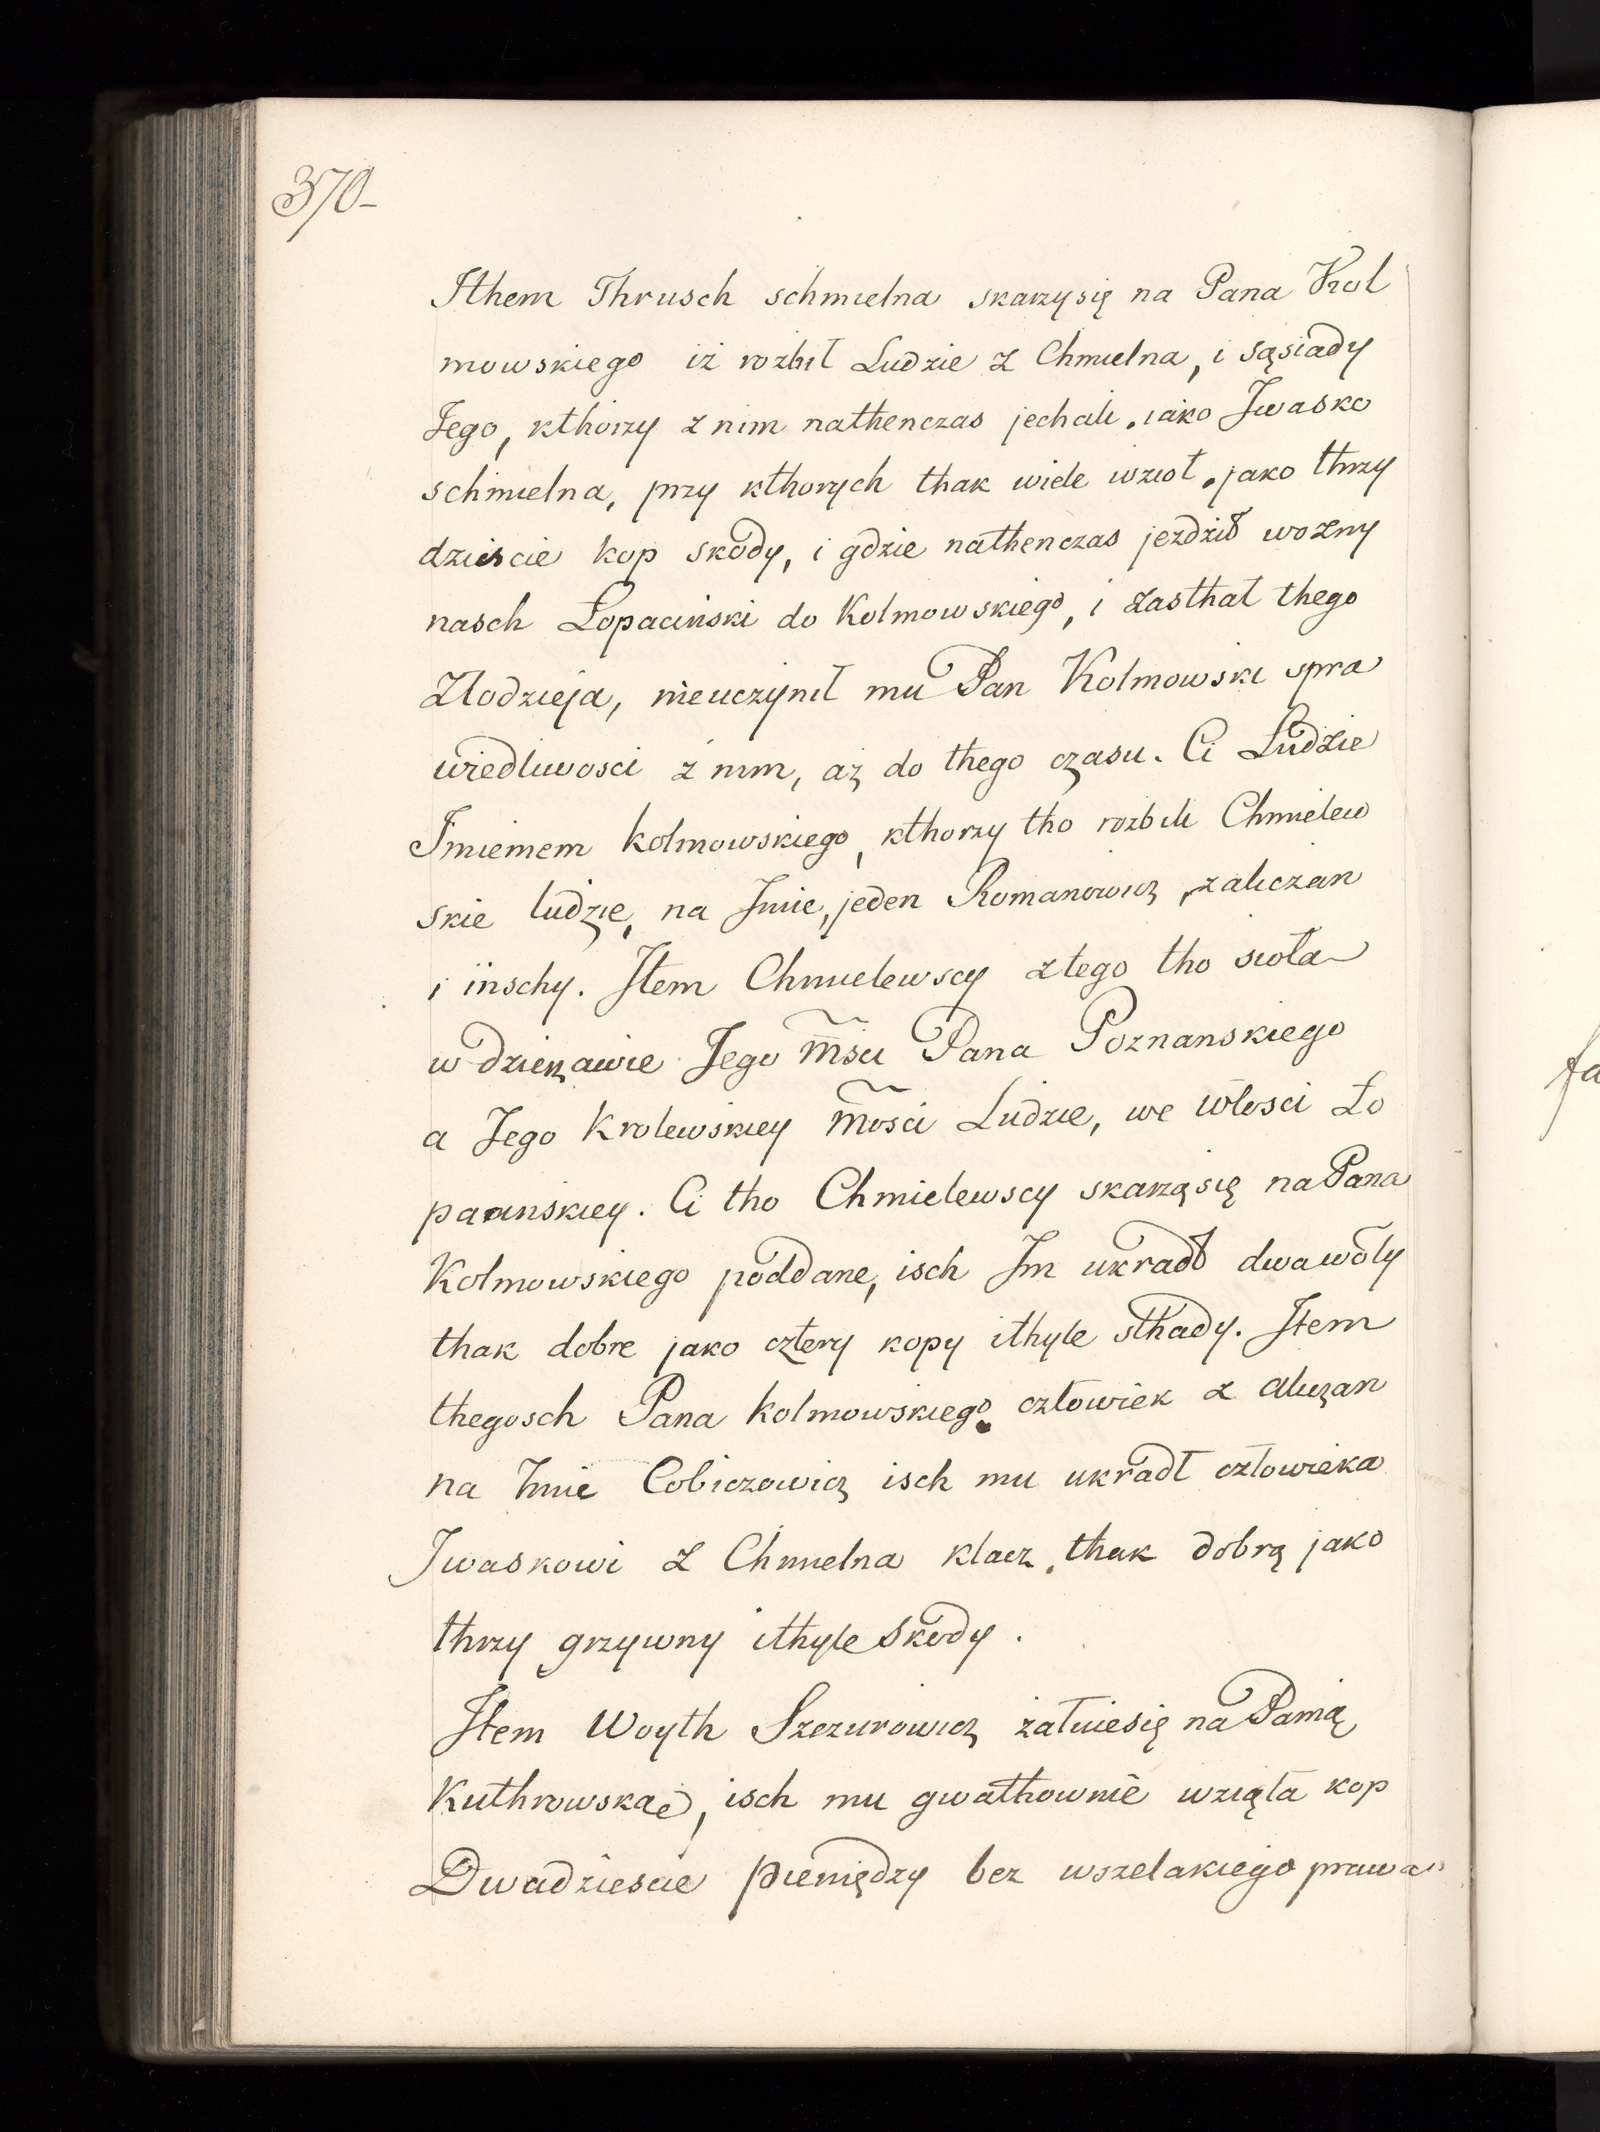 370-
Ithem Thrusch schmielna skarzy się na Pana Kol
mowskiego iż rozbił Ludzie z Chmielna, i sąsiady
Jego, kthorzy z nim nathenczas jechali. iako Iwasko
schmielna, przy kthorych thak wiele wzioł. jako thrzy
dzieście kop skody, i gdzie nathenczas jezdził wozny
nasch Łopaciński do Kolmowskiego, i zasthał thego
Złodzieja, nieuczynił mu Pan Kolmowski spra
wiedliwosci z nim, aż do thego czasu. Ci Ludzie
Imieniem kolmowskiego, kthorzy tho rozbili Chmielew
skie ludzie, na Imie, jeden Romanowicz, zaliczan
i iinschy. Item Chmielewscy z tego tho sioła
w dzierzawie Jego mści Pana Poznanskiego
a Jego Krolewskiey mosci Ludzie, we włosci Ło
pacinskiey. Ci tho Chmielewscy skarzą się na Pana
Kolmowskiego poddane, isch Im ukradł dwa woły
thak dobre jako cztery kopy ithyle sthady. Item
thegosch Pana kolmowskiego. człowiek z aliczan
na Imie Cobiczowicz isch mu ukradł człowieka
Iwaskowi z Chmielna klacz. thak dobrą jako
thrzy grzywny ithyle skody.
Item Woyth Szczurowicz żałuie się na Panią
Kuthrowskae, isch mu gwałthownie wzięła kop
Dwadziescie pieniędzy bez wszelakiego prawa
fa